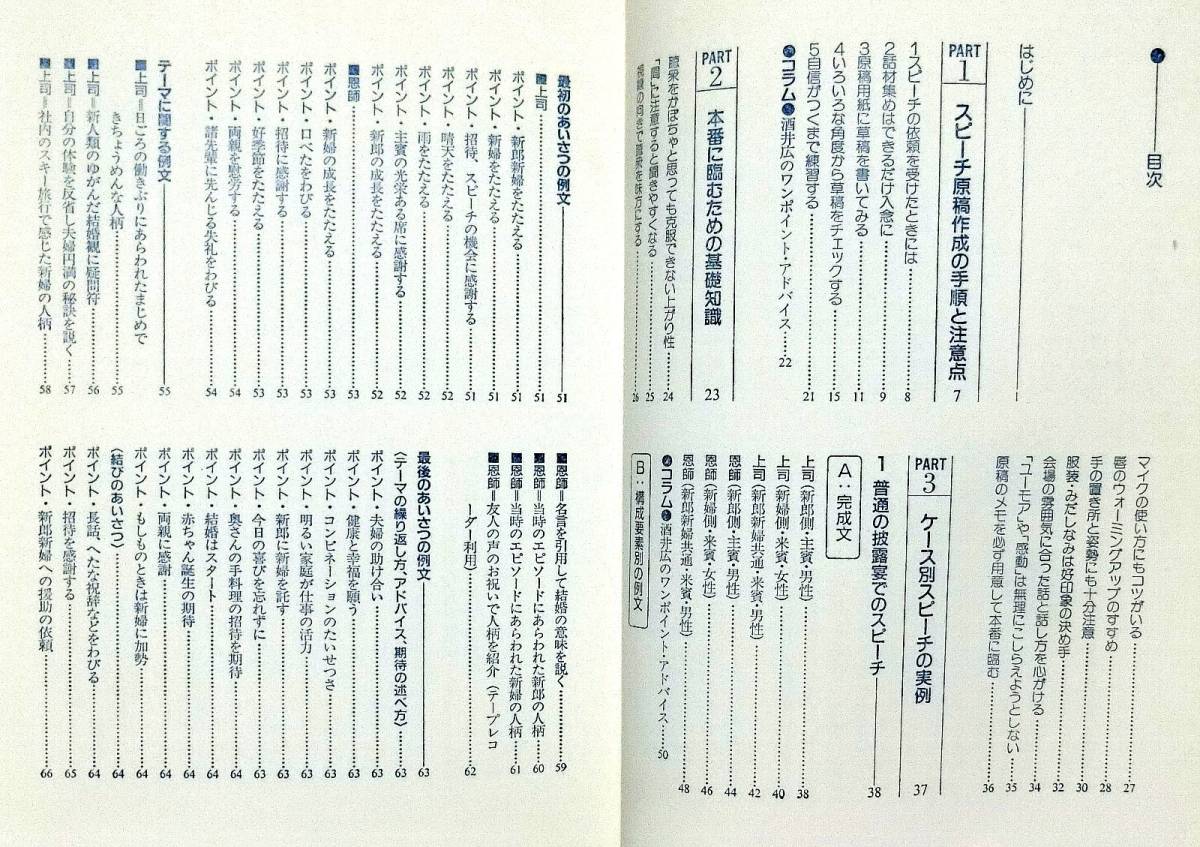 目次
はじめに……1
PART 1 スピーチ原稿作成の手順と注意点 7
1 スピーチの依頼を受けたときには……8
2 話材集めはできるだけ入念に……9
3 原稿用紙に草稿を書いてみる……11
4 いろいろな角度から草稿をチェックする……15
5 自信がつくまで練習する……21
●コラム● 酒井広のワンポイント・アドバイス……22
PART 2 本番に臨むための基礎知識 23
聴衆をかぼちゃと思っても克服できない上がり性……24
「間」に注意すると聞きやすくなる……25
視線の向きで聴衆を味方にする……26
マイクの使い方にもコツがいる……27
唇のウォーミングアップのすすめ……28
手の置き所と姿勢にも十分注意……30
服装・みだしなみは好印象の決め手……32
会場の雰囲気に合った話と話し方を心がける……34
「ユーモア」や「感動」は無理にこしらえようとしない……35
原稿のメモを必ず用意して本番に臨む……36
PART 3 ケース別スピーチの実例 37
1 普通の披露宴でのスピーチ 38
A:完成文
上司(新郎側・主賓・男性)……38
上司(新婦側・来賓・男性)……40
上司(新郎新婦共通・来賓・男性)……42
恩師(新郎側・主賓・男性)……44
恩師(新婦側・来賓・女性)……46
恩師(新郎新婦共通・来賓・男性)……48
●コラム● 酒井広のワンポイント・アドバイス……50
B:構成要素別の例文
最初のあいさつの例文 51
■上司……51
ポイント・新郎新婦をたたえる……51
ポイント・新婦をたたえる……51
ポイント・招待、スピーチの機会に感謝する……51
ポイント・晴天をたたえる……52
ポイント・雨をたたえる……52
ポイント・主賓の光栄ある席に感謝する……52
ポイント・新郎の成長をたたえる……52
■恩師……53
ポイント・新婦の成長をたたえる……53
ポイント・口べたをわびる……53
ポイント・招待に感謝する……53
ポイント・好季節をたたえる……53
ポイント・両親を慰労する……54
ポイント・諸先輩に先んじる失礼をわびる……54
テーマに関する例文 55
■上司=日ごろの働きぶりにあらわれたまじめで
きちょうめんな人柄……55
■上司=新人類のゆがんだ結婚観に疑問符……56
■上司=自分の体験を反省し夫婦円満の秘訣を説く……57
■上司=社内のスキー旅行で感じた新婦の人柄……58
■恩師=名言を引用して結婚の意味を説く……59
■恩師=当時のエピソードにあらわれた新郎の人柄……60
■恩師=当時のエピソードにあらわれた新婦の人柄……61
■恩師=友人の声のお祝いで人柄を紹介(テープレコ
ーダー利用)……62
最後のあいさつの例文 63
〈テーマの繰り返し方、アドバイス、期待の述べ方〉……63
ポイント・夫婦の助け合い……63
ポイント・健康と幸福を願う……63
ポイント・コンビネーションのたいせつさ……63
ポイント・明るい家庭が仕事の活力……63
ポイント・新郎に新婦を託す……63
ポイント・今日の喜びを忘れずに……63
ポイント・奥さんの手料理の招待を期待……64
ポイント・結婚はスタート……64
ポイント・赤ちゃん誕生の期待……64
ポイント・両親に感謝……64
ポイント・もしものときは新婦に加勢……64
〈結びのあいさつ〉……64
ポイント・長話、へたな祝辞などをわびる……64
ポイント・招待を感謝する……65
ポイント・新郎新婦への援助の依頼……66